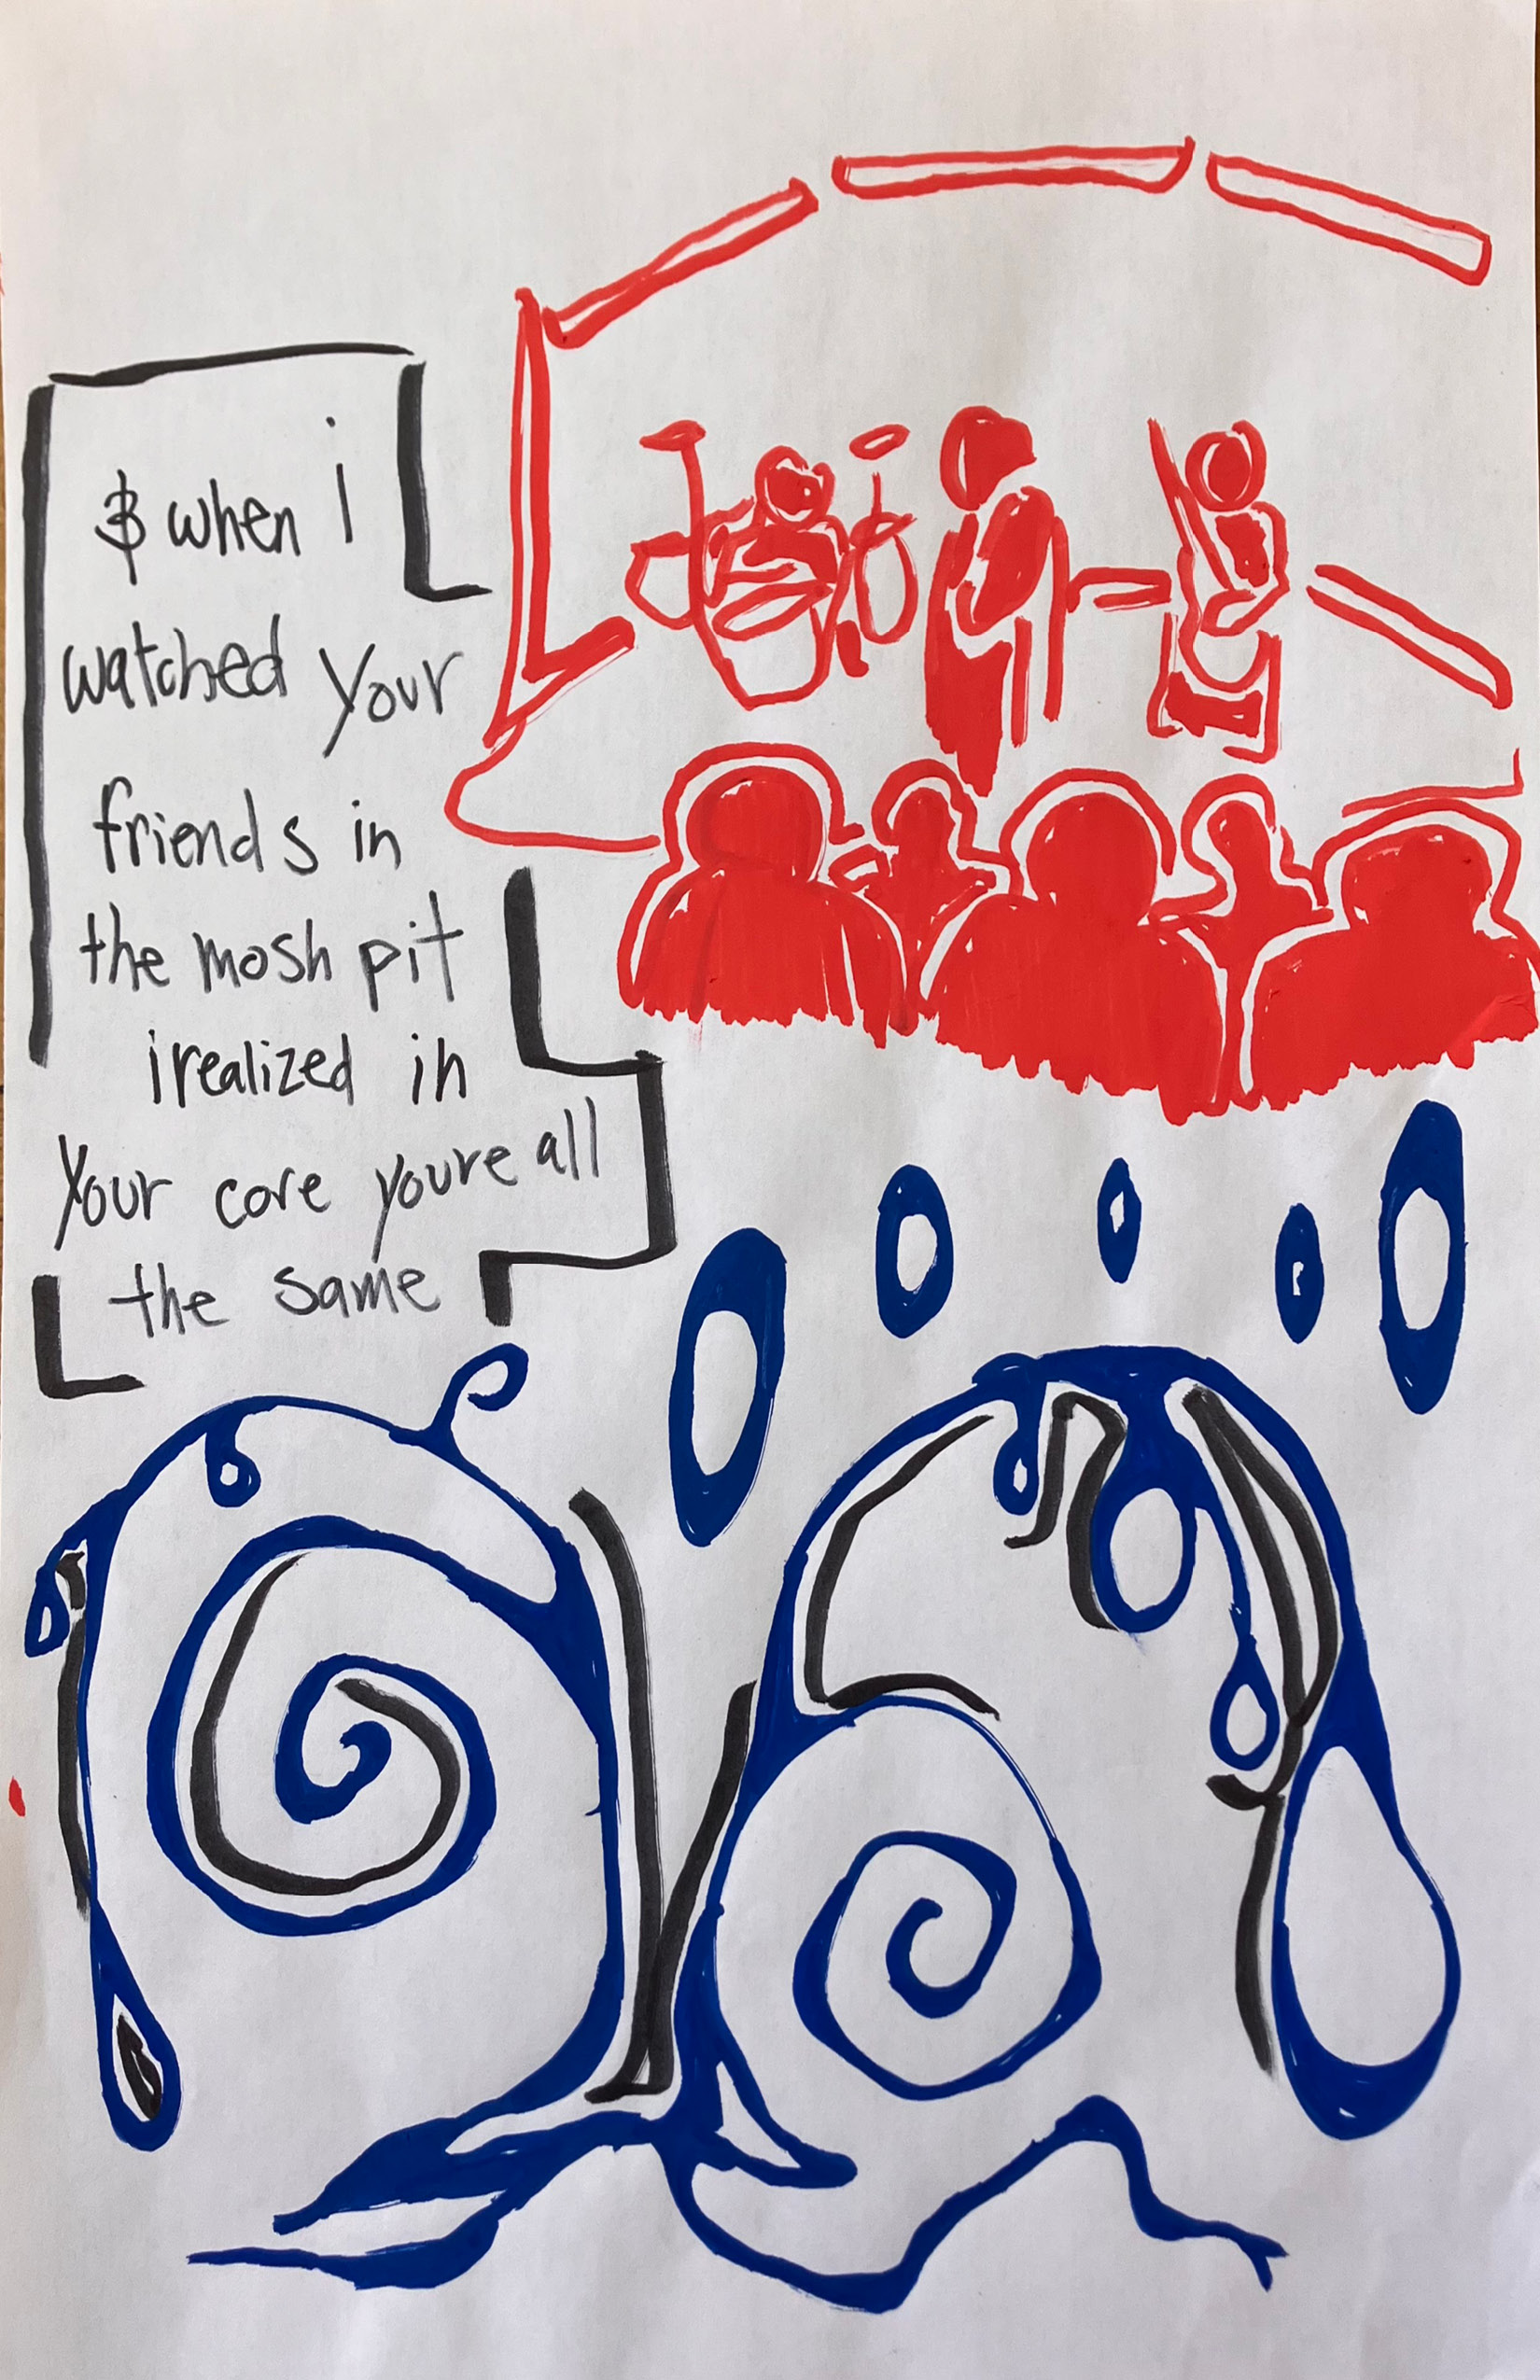 & when i
watched your
friends in
the mosh pit
irealized in
your core youre all
the same